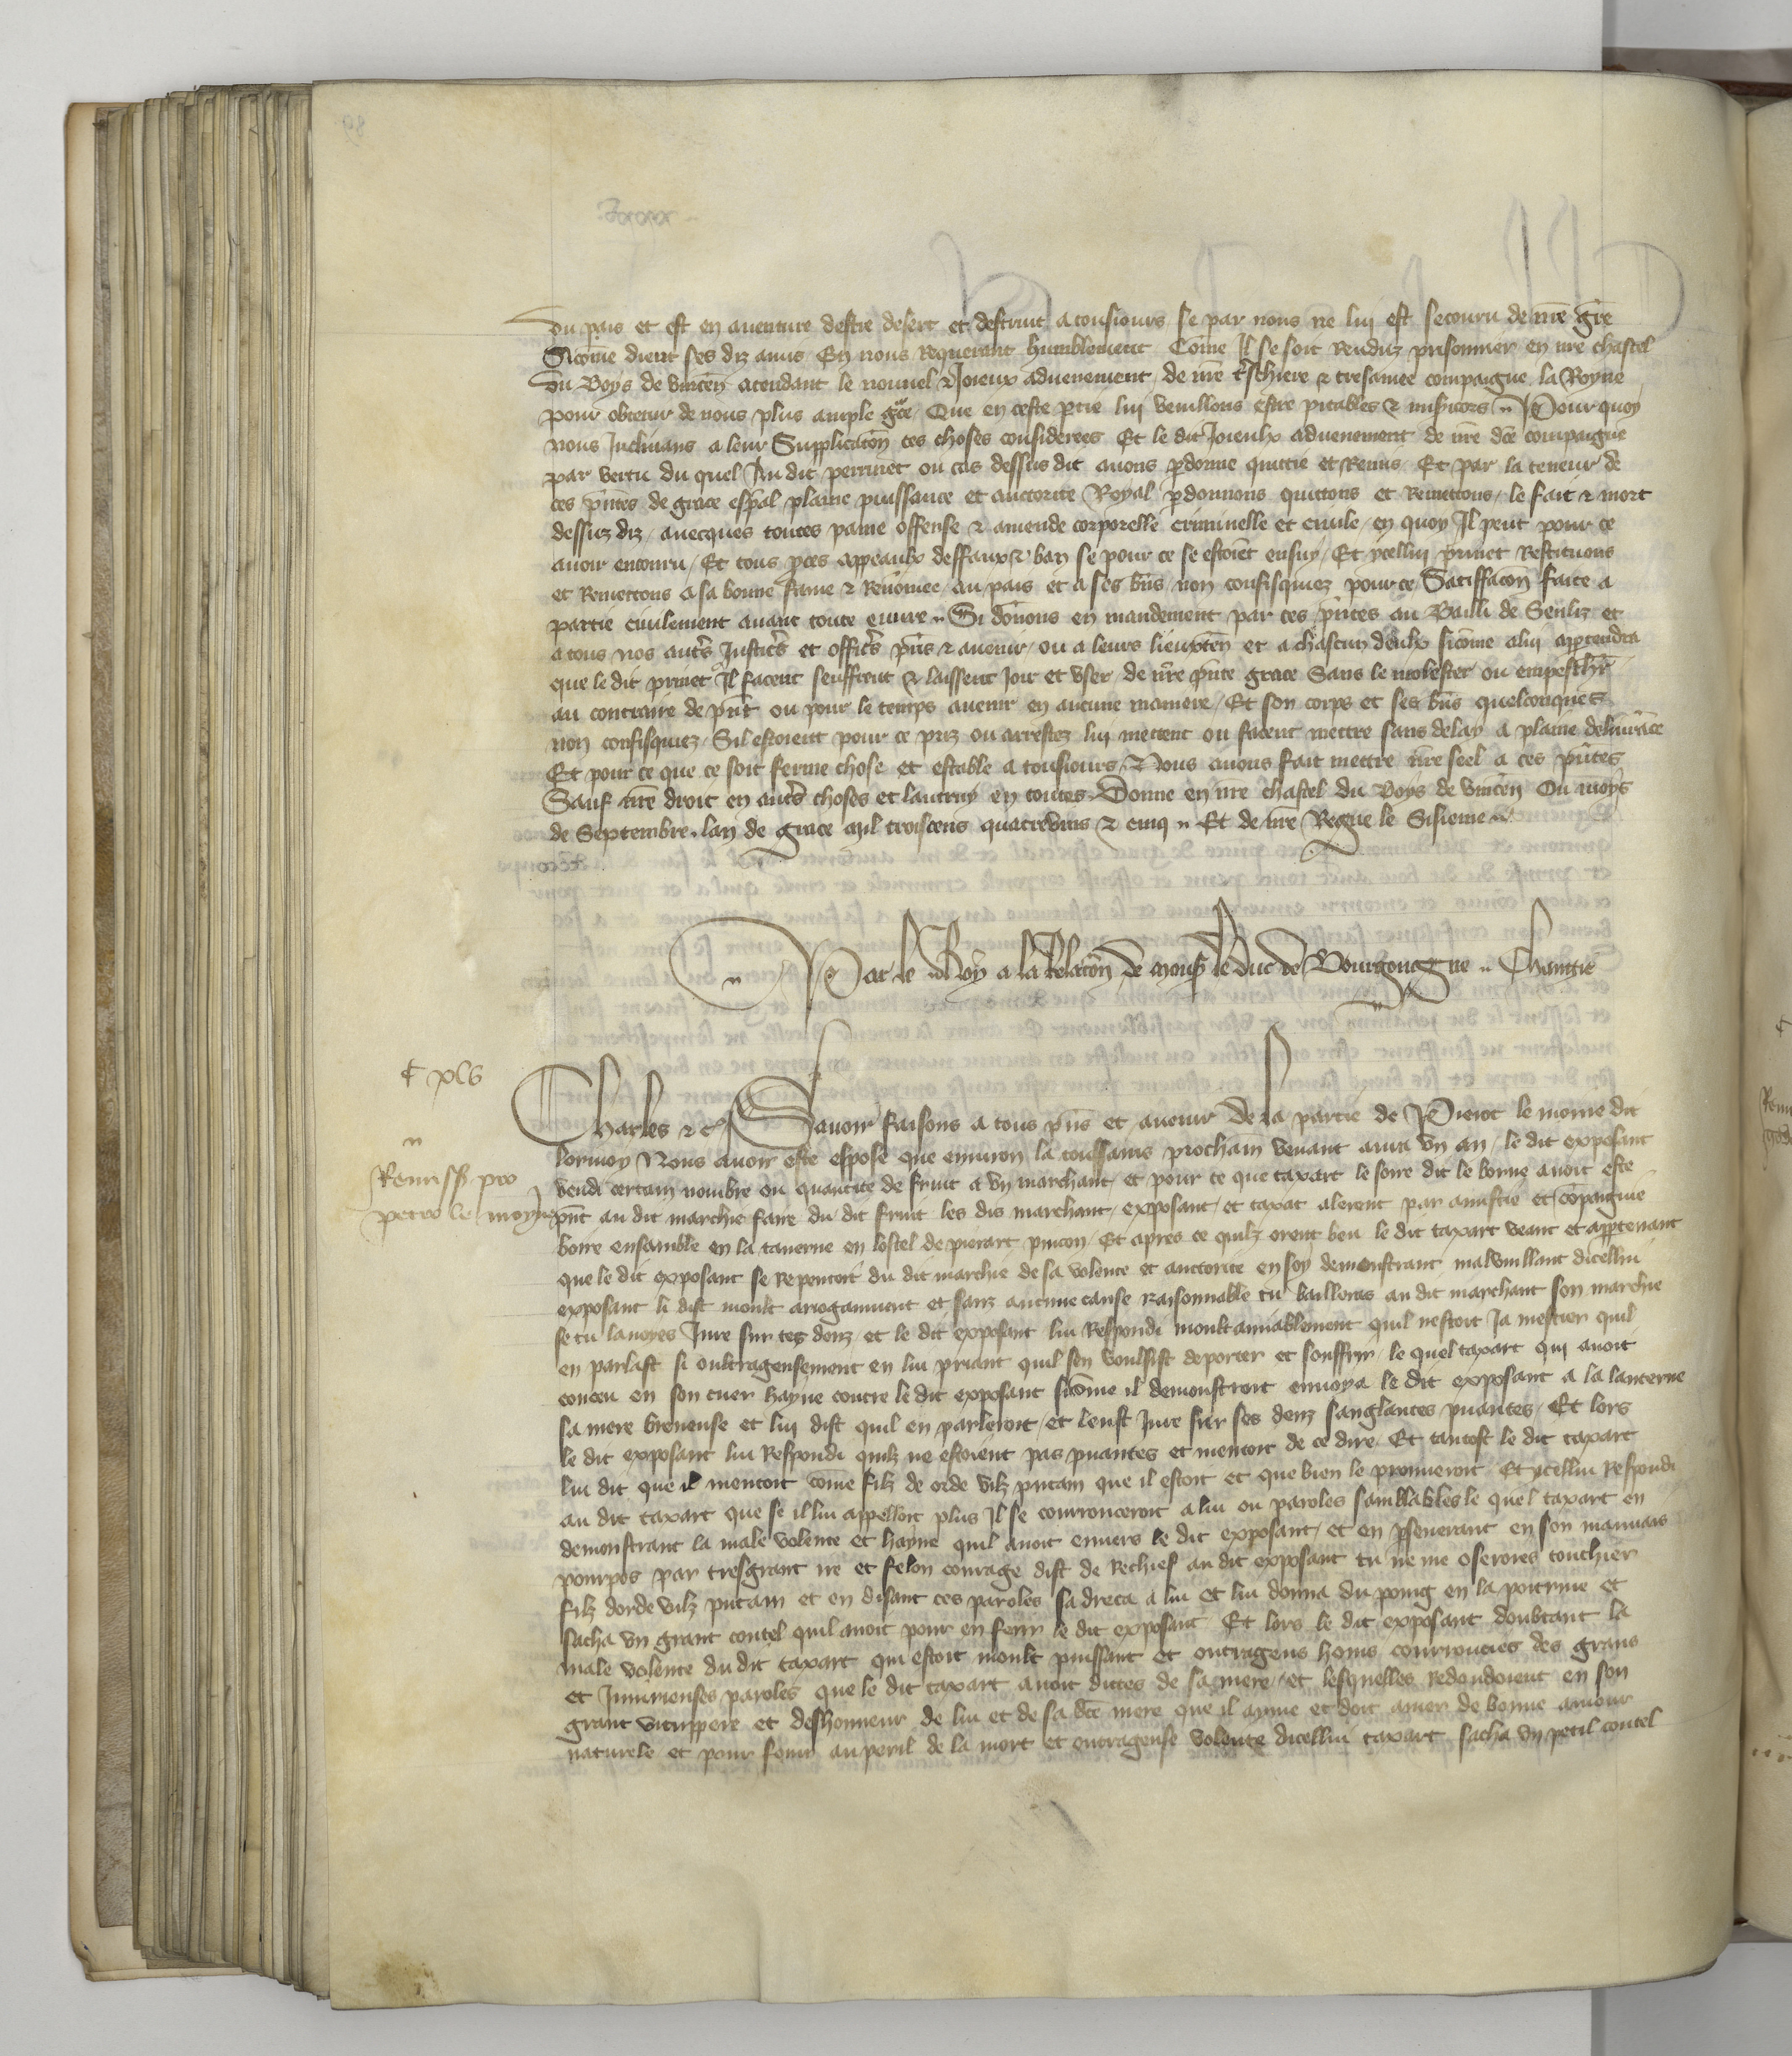 du pais et est en auenture destre desert et destruit a tousiours se par nous ne lui est secouru de nre gce
Sicome dient ses diz amis En nous Requerant humblement Come Il se soit Renduz prisonnier en nre chastel
Du Boys de vincen atendant le nouuel & Joieux aduenement de nre treschiere & tresamee compaigne la Royne
pour obtenir de nous plus ample gce Que en ceste ptie lui veuillons estre pitables & misicors Pour quoy
nous Inclinans a leur Supplicacon ces choses considerees Et le dit Joieulx aduenement de nre dce compaigne
par vertu du quel Au dit perrinet ou cas dessus dit auons pdonne quittie et Remis Et par la teneur de
ces pntes de grace espal plaine puissance et auctorite Royal pdonnons quittons et Remettons le fait & mort
dessuz diz auecques toutes paine offense & amende corporelle criminelle et ciuile en quoy Il peut pour ce
auoir encouru Et tous pces appeaulx deffaux & ban se pour ce se estoient ensuy Et ycellui prinet Restituons
et Remettons a sa bonne fame & Renomee au pais et a ses bns non confisquiez pour ce Satisfacon faite a
partie ciuilement auant toute euure Si donnons en mandement par ces pntes au Bailli de Senliz et
a tous nos autrs Justicrs et officrs pns & auenir ou a leurs lieuxten et a chascun deulx sicome a lui apptendra
que le dit prinet Il facent seuffrent & laissent Joir et vser de nre pnte grace Sans le molester ou empeschr
au contraire de pnt ou pour le temps auenir en aucune maniere Et son corps et ses bns quelconques
non confisquiez Sil estoient pour ce priz ou arrestez lui mettent ou facent mettre sans delay a plaine deliurace
Et pour ce que ce soit ferme chose et estable a tousiours Nous auons fait mettre nre seel a ces pntes
Sauf nre droit en autrs choses et lautruy en toutes Donne en nre chastel du Boys de vincen Ou moys
de Septembre lan de grace mil troiscens quatrevins & cinq Et de nre Regne le Sisieme
Par le Roy a la Relacon de monsr le duc de Bourgongne Chantie
Charles & c Sauoir faisons a tous pns et auenir De la partie de Pierot le moine dit
lormoy Nous auoir este expose que enuiron la toussains prochain venant aura vn an le dit exposant
Remissio pro
vendi certain nombre ou quantite de fruit a vn marchant et pour ce que taxart le soire dit le borne auoit este
petro le moyne
pnt au dit marchie faire du dit fruit les dis marchant exposant et taxat alerent par amistie et copaignie
boire ensamble en la tauerne en lostel de pierart pincon Et apres ce quilz orent beu le dit taxart veant et appteuant
que le dit exposant se Repentoit du dit marchie de sa volente et auctorite en soy demonstrant malvuillant dicellui
exposant li dist moult arrogamment et sanz aucune cause raisonnable tu bailleras au dit marchant son marchie
se tu lauoyes Jure sur tes denz et le dit exposant lui Respondi moult amiablement quil nestoit Ja mestier quil
en parlast si oultrageusement en lui priant quil sen voulsist deporter et souffrir le quel taxart qui auoit
conceu en son cuer hayne contre le dit exposant sicome il demonstroit enuoya le dit exposant a la lanterne
sa mere breneuse et lui dist quil en parleroit et leust Jure sur ses denz sanglantes puantes Et lors
le dit exposant lui Respondi quilz ne estoient pas puantes et mentoit de ce dire Et tantost le dit taxart
lui dit que il mentoit come filz de orde vilz putain que il estoit et que bien le prouueroit Et ycellui Respondi
au dit taxart que se il lui appelloit plus Il se courrouceroit a lui ou paroles samblables le quel taxart en
demonstrant la male volente et hayne quil auoit enuers le dit exposant et en pseuerant en son mauuais
pourpos par tresgrant ire et felon courage dist de Rechief au dit exposant tu ne me oseroies touchier
filz dorde vilz putain et en disant ces paroles sa dreca a lui et lui donna du poing en la poitrine et
sacha vn grant coutel quil auoit pour en ferir le dit exposant Et lors le dit exposant doubtant la
male volente du dit taxart qui estoit moult puissant et outrageus homs courrouciez des grans
et Iniurieuses paroles que le dit taxart auoit dictes de sa mere et lesquelles redondoient en son
grant vitupere et deshonneur de lui et de sa dce mere que il ayme et doit amer de bonne amour
naturele et pour fouir au peril de la mort et outrageuse volente dicellui taxart sacha vn petit coutel